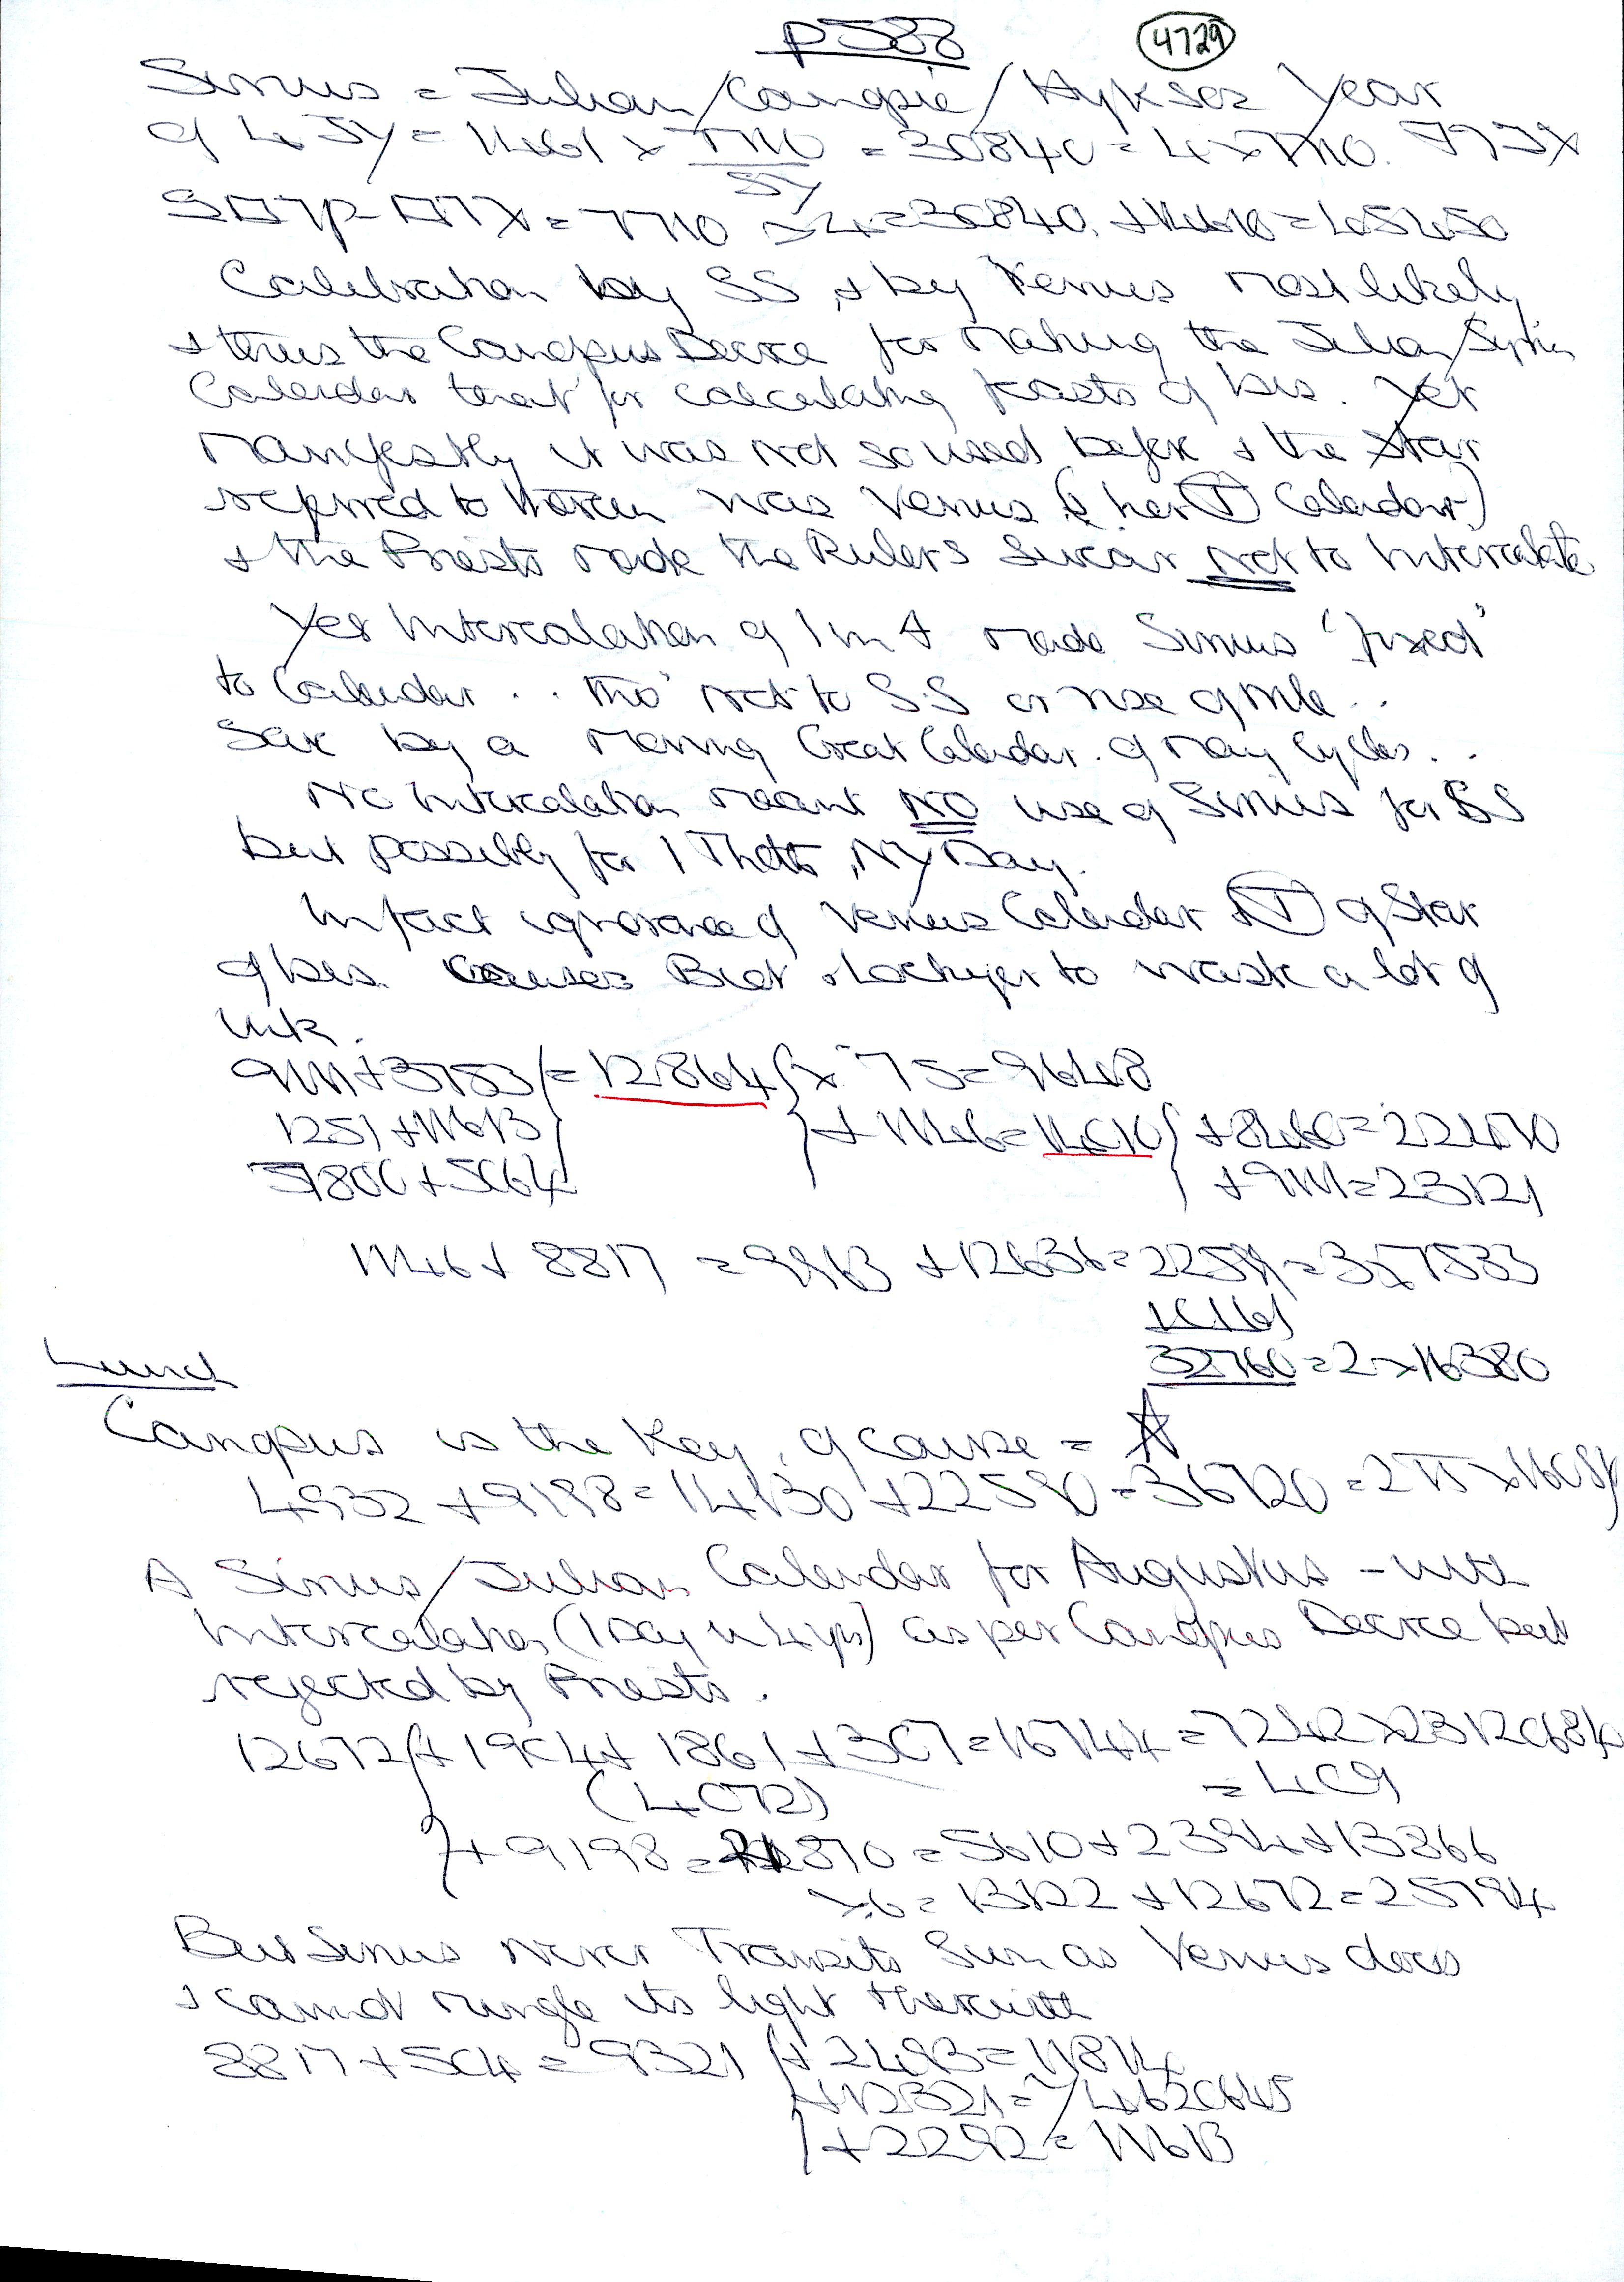 p588 4729
Sirius = Julian/Canopic/Hyksos Year
of 4 = 11461 x 7710 = 30840 = 4x7710.
SY
= 7710 x4=30840. =
Calibration by SS, + by Venus most likely
+ thus the Canopus Decree for making the Julian/
Calendar that for calculating feasts of Isis. Yet
Manifestly it was not so used before + the Star
referred to therein was Venus (& her T Calendar)
+ the Priests made the Rulers Swear not to Intercalate
Yet Intercalation of 1 in 4 made Sirius "fixed"
to Calendar .. tho' not to SS or rise of Nile..
Save by a Moving Great Calendar. of many Cycles...
No Intercalation meant NO use of Sirius for SS
but possibly for 1 Thoth, NY Day.
In fact ignorance of Venus Calendar + T of Star
of Isis. Causes Biot + Lockyer to waste a lot of
ink.
9111+3753 = 12864 x 75=9648
1251+11613 + 1146=14010 +8460=22470
+5064 +9111=23121
1146+ 8817 =9963 +12636=22599=3x7533
10161
32760=2x16380
Lunch
Canopus is the Key, of course =
4932 +9198=14130 +22590=36720 =2
A Sirius/Julian Calendar for Augustus - with
Intercalation (1 Day in 4 yrs) as per Canopus Decree but
rejected by Priests.
12672 + 1904+ 1861 +307=16744 =
(4072) = 409
+ 9198=21870 =5610+2394+13866
= 13122 +12672=25794
But Sirius never Transits Sun as Venus does
+ cannot mingle its light therewith
8817+504= 9321 +2493=11814
+12321=
+2292= 11613